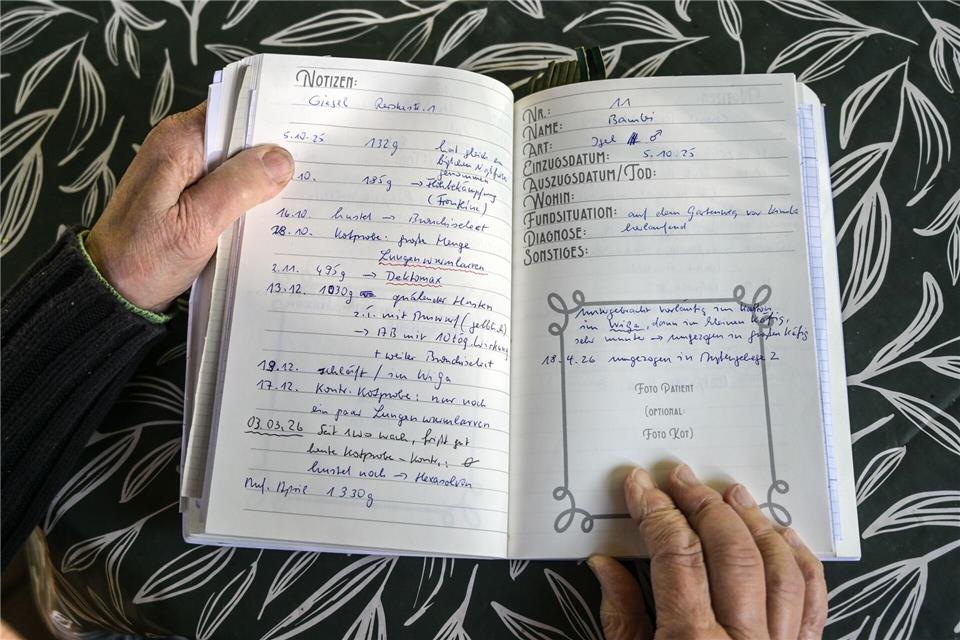 NOTIZEN:
Giesel
5.10.25 132g hat gleich ein
bißchen Naßfutter
genommen
.10. 185g → Flohbekämpfung
(Fronkine)
16.10. hustet → Bronchiselect
28.10. Kotprobe: große Menge
Lungenwurmlarven
2.11. 495g → Dektomax
13.12. 1030g quälender Husten
z.T. mit Auswurf (gelblich)
→ AB mit 10 täg. Wirkung
+ weiter Bronchiselect
19.12. schläft / im Wiga
17.12. Kontr. Kotprobe: nur noch
ein paar Lungenwurmlarven
03.03.26 Seit 1 Wo wach, frißt gut
heute Kotprobe-Kontr.: ø
hustet noch → Hexasolvin
Anf. April 1330g
NR.: 11
NAME: Bambi
ART: Igel ♂
EINZUGSDATUM: 5.10.25
AUSZUGSDATUM/TOD:
WOHIN:
FUNDSITUATION: auf dem Gartenweg vor
DIAGNOSE: herlaufend
SONSTIGES:
untergebracht vorläufig im Karton
im Wiga, dann im kleinen Käfig,
sehr munter → umgezogen in großen Käfig
18.4.26 umgezogen in Außengehege 2
FOTO PATIENT
(OPTIONAL:
FOTO KOT)